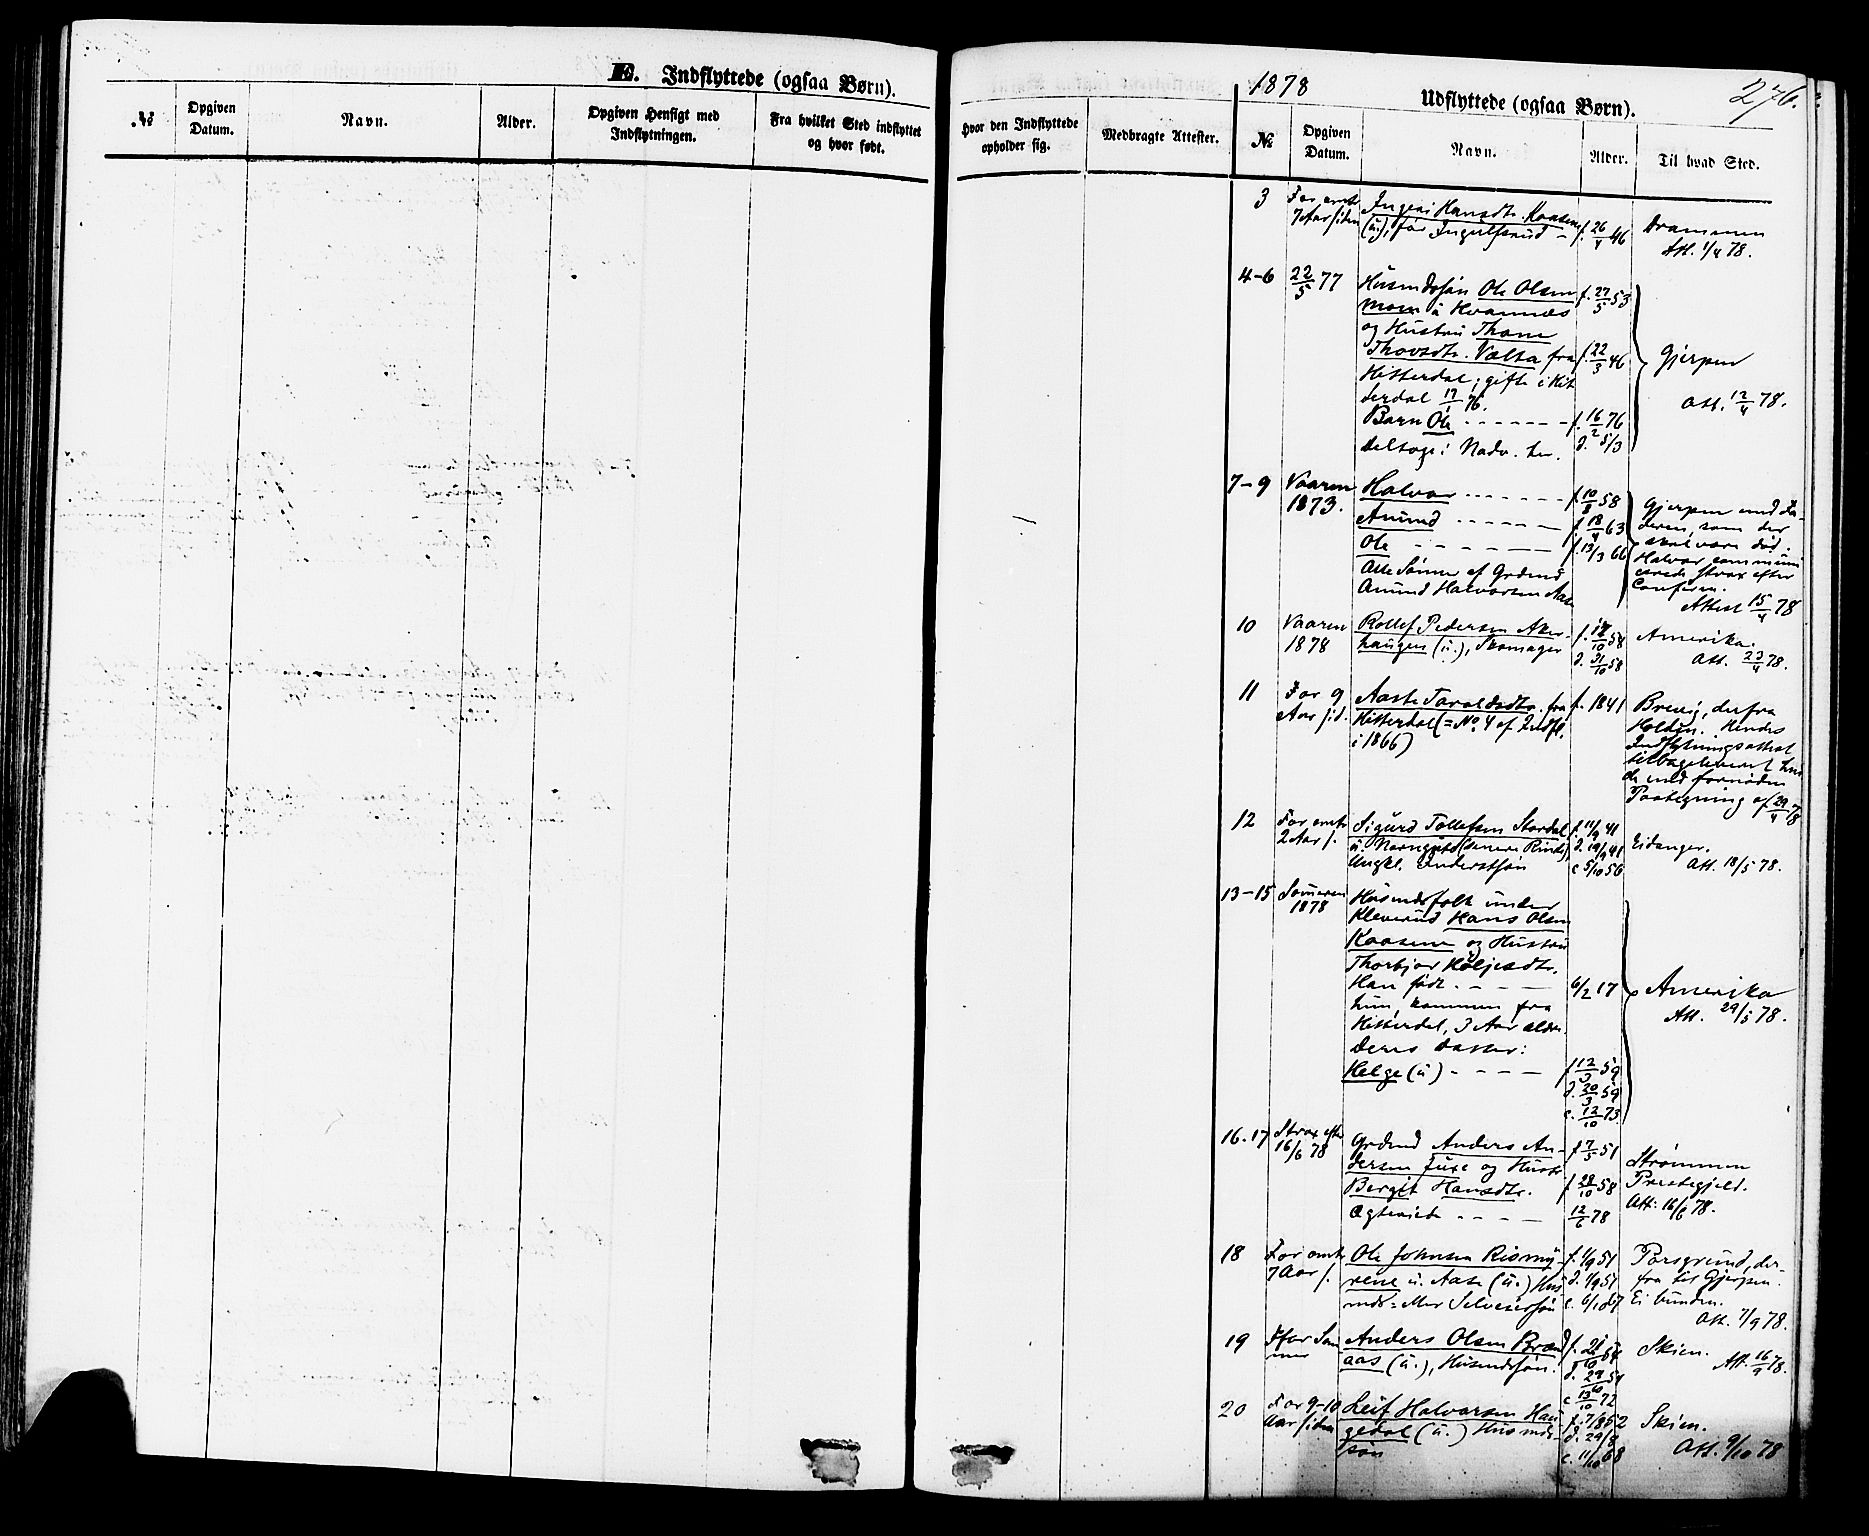 E. Indflyttede (ogsaa Børn).
1878
Udflyttede (ogsaa Børn).
276.
№
Opgiven Datum.
Navn.
Alder.
Opgiven Hensigt med Indflytningen.
Fra hvilket Sted indflyttet og hvor født.
Hvor den Indflyttede opholder sig.
Medbragte Attester.
№
Opgiven Datum.
Navn.
Alder.
Til hvad Sted.
3 For omtr. Hansdtr. Kaasene Drammen
7 Aar siden (u), før f. 26/4 46 Att. 1/4 78.
4-6 22/5 77 Husmdssøn Ole Olsen f. 27/5 53
Moen u Hvamnæs
og Hustru Thone
Thovsdtr. Valta fra f. 22/3 46 Gjerpen
Hitterdal; gifte i Hit
derdal 17/1 76. Att. 12/4 78.
Barn Ole f. 16/2 76
deltoge i Nadv. her. d. 5/3
7-9 Vaaren Halvor f. 10/8 58 Gjerpen med Fa-
1873. Anund f. 18/4 63 deren, som der
Ole f. 13/3 66 skal være død.
Alle Sønner af Grdmd Halvor communi
Anund Halvorsen Aase cerede strax efter
Confirm.
Attest 15/4 78
10 Vaaren Rollef Pedersen Aker- Amerika.
1878 haugen (u.), Skomager d. 31/10 58 Att. 23/4 78.
11 For 9 Aaste Taraldsdtr. fra f. 1841 Brevig, derfra
Aar sid. Hitterdal (= No. 4 af Indfl. Holden. Hendes
i 1866) Indflytningsattest
tilbageleveret hen
de med fornøden
Paategning af 29/4 78
12 For omtr. Sigurd Tollefsen Stordal f. 11/9 41
2 Aar s. (senere Rinde), d. 19/9 41 Eidanger.
Ungk. c 5/10 56 Att. 18/5 78.
13-15 Sommeren Husmdsfolk under
1878 Kleverud Hans Olsen
Kaasene og Hustru
Thorbjør
Han født 6/2 17 Amerika
hun, kommen fra
Hitterdal, 3 Aar ældre Att. 29/5 78.
Deres Datter:
Helge (u) f 12/3 59
d. 20/3 59
c. 12/10 73
16.17 Strax efter Grdmd Anders An- f 7/5 51
16/6 78 dersen Juxe og Hustr. Strømmen
Bergit Hansdtr. f 28/10 58 Præstegjeld.
Ægteviede 12/6 78 Att. 16/6 78.
18 For omtr. Ole Johnsen Rismy- f. 1/9 51 Porsgrund, der-
7 Aar s. rene u. Aase (u.) Hus d. 1/9 51 fra til Gjerpen.
c. 6/10 67 Ei bunden.
Att. 7/9 78.
19 Ifjor Som Anders Olsen Skien.
mer aas (u.), Husmdssøn. Att. 16/9 78.
c 13/10 72
20 For 9-10 Leif Halvorsen Hau f. 7/8 52 Skien.
Aar siden gedal (u.) Husmds- d. 29/8
søn c. 11/10 68 Att. 9/10 78